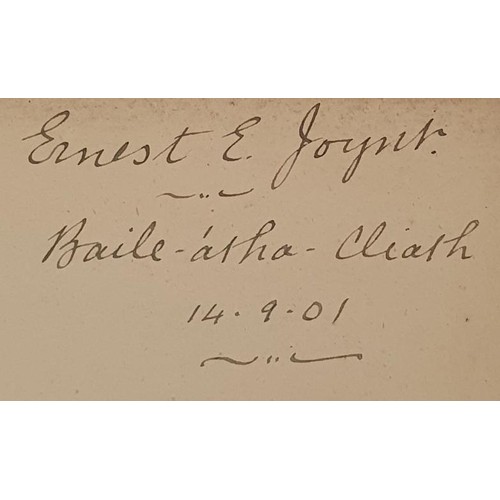 Ernest E. Joynt.
Baile-átha-Cliath
14.9.01